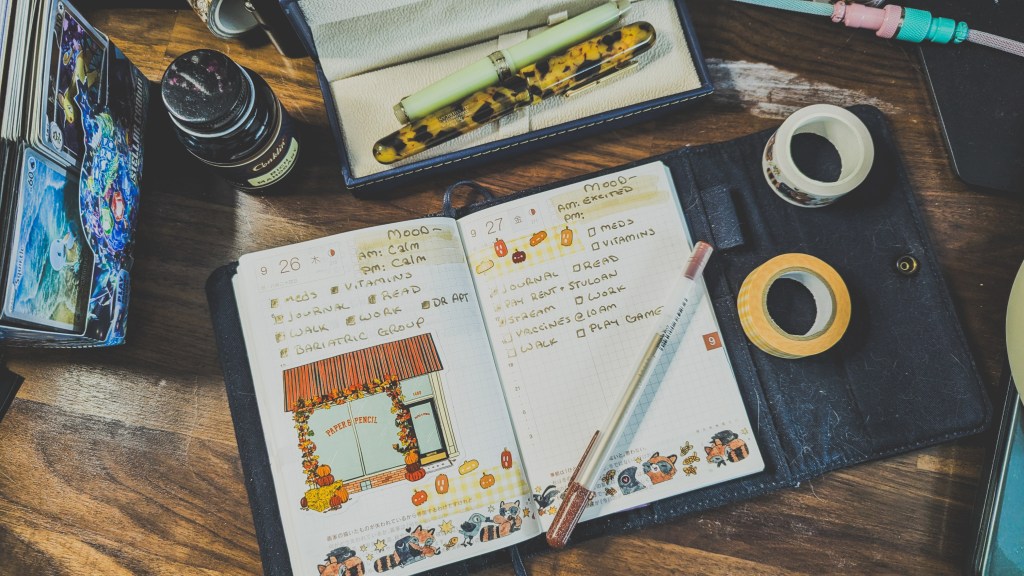 Conklin
9 26 木
MOOD-
AM: Calm
PM: Calm
MEDS VITAMINS
JOURNAL READ
WALK WORK DR APT
BARIATRIC GROUP
PAPER & PENCIL
9 27 金
MOOD-
AM: EXCITED
PM:
MEDS
VITAMINS
JOURNAL READ
PAY RENT + STULOAN
STREAM WORK
VACCINES @ 10AM
WALK PLAY GAME
9